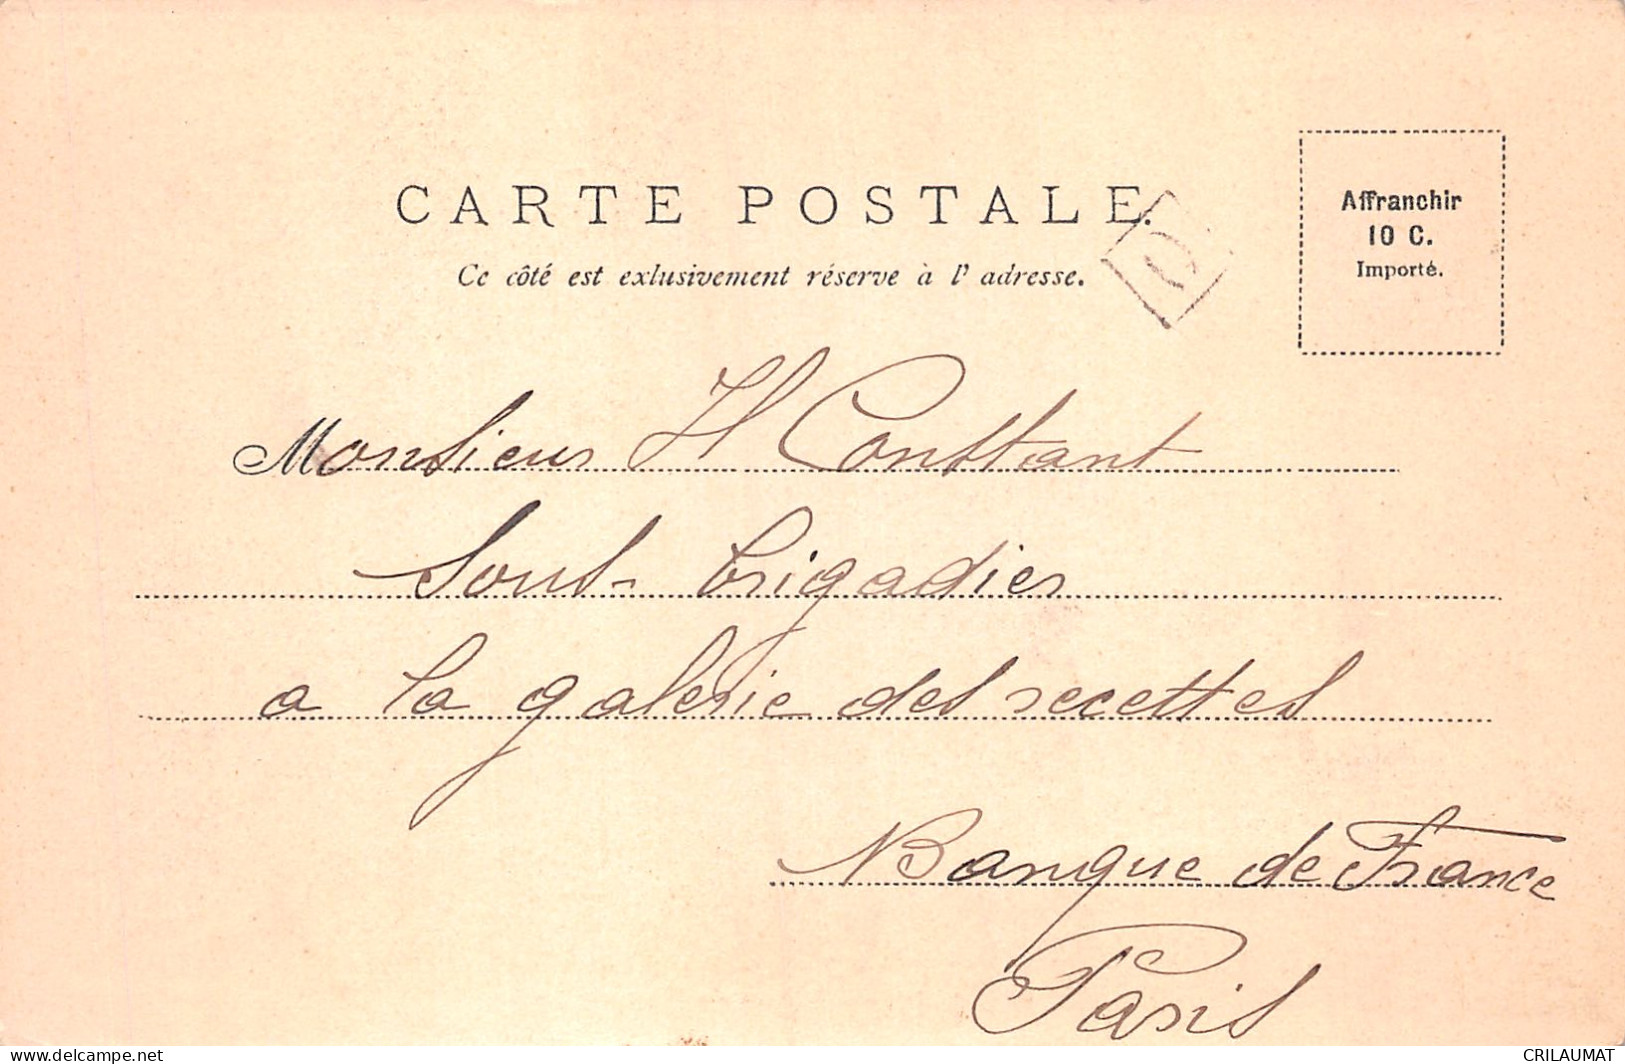 CARTE POSTALE.
Ce côté est exlusivement réserve à l' adresse.
Affranchir
10 C.
Importé.
D
Monsieur H Constant
Sous-brigadier
a la galerie des recettes
Banque de France
Paris
delcampe.net
CRILAUMAT